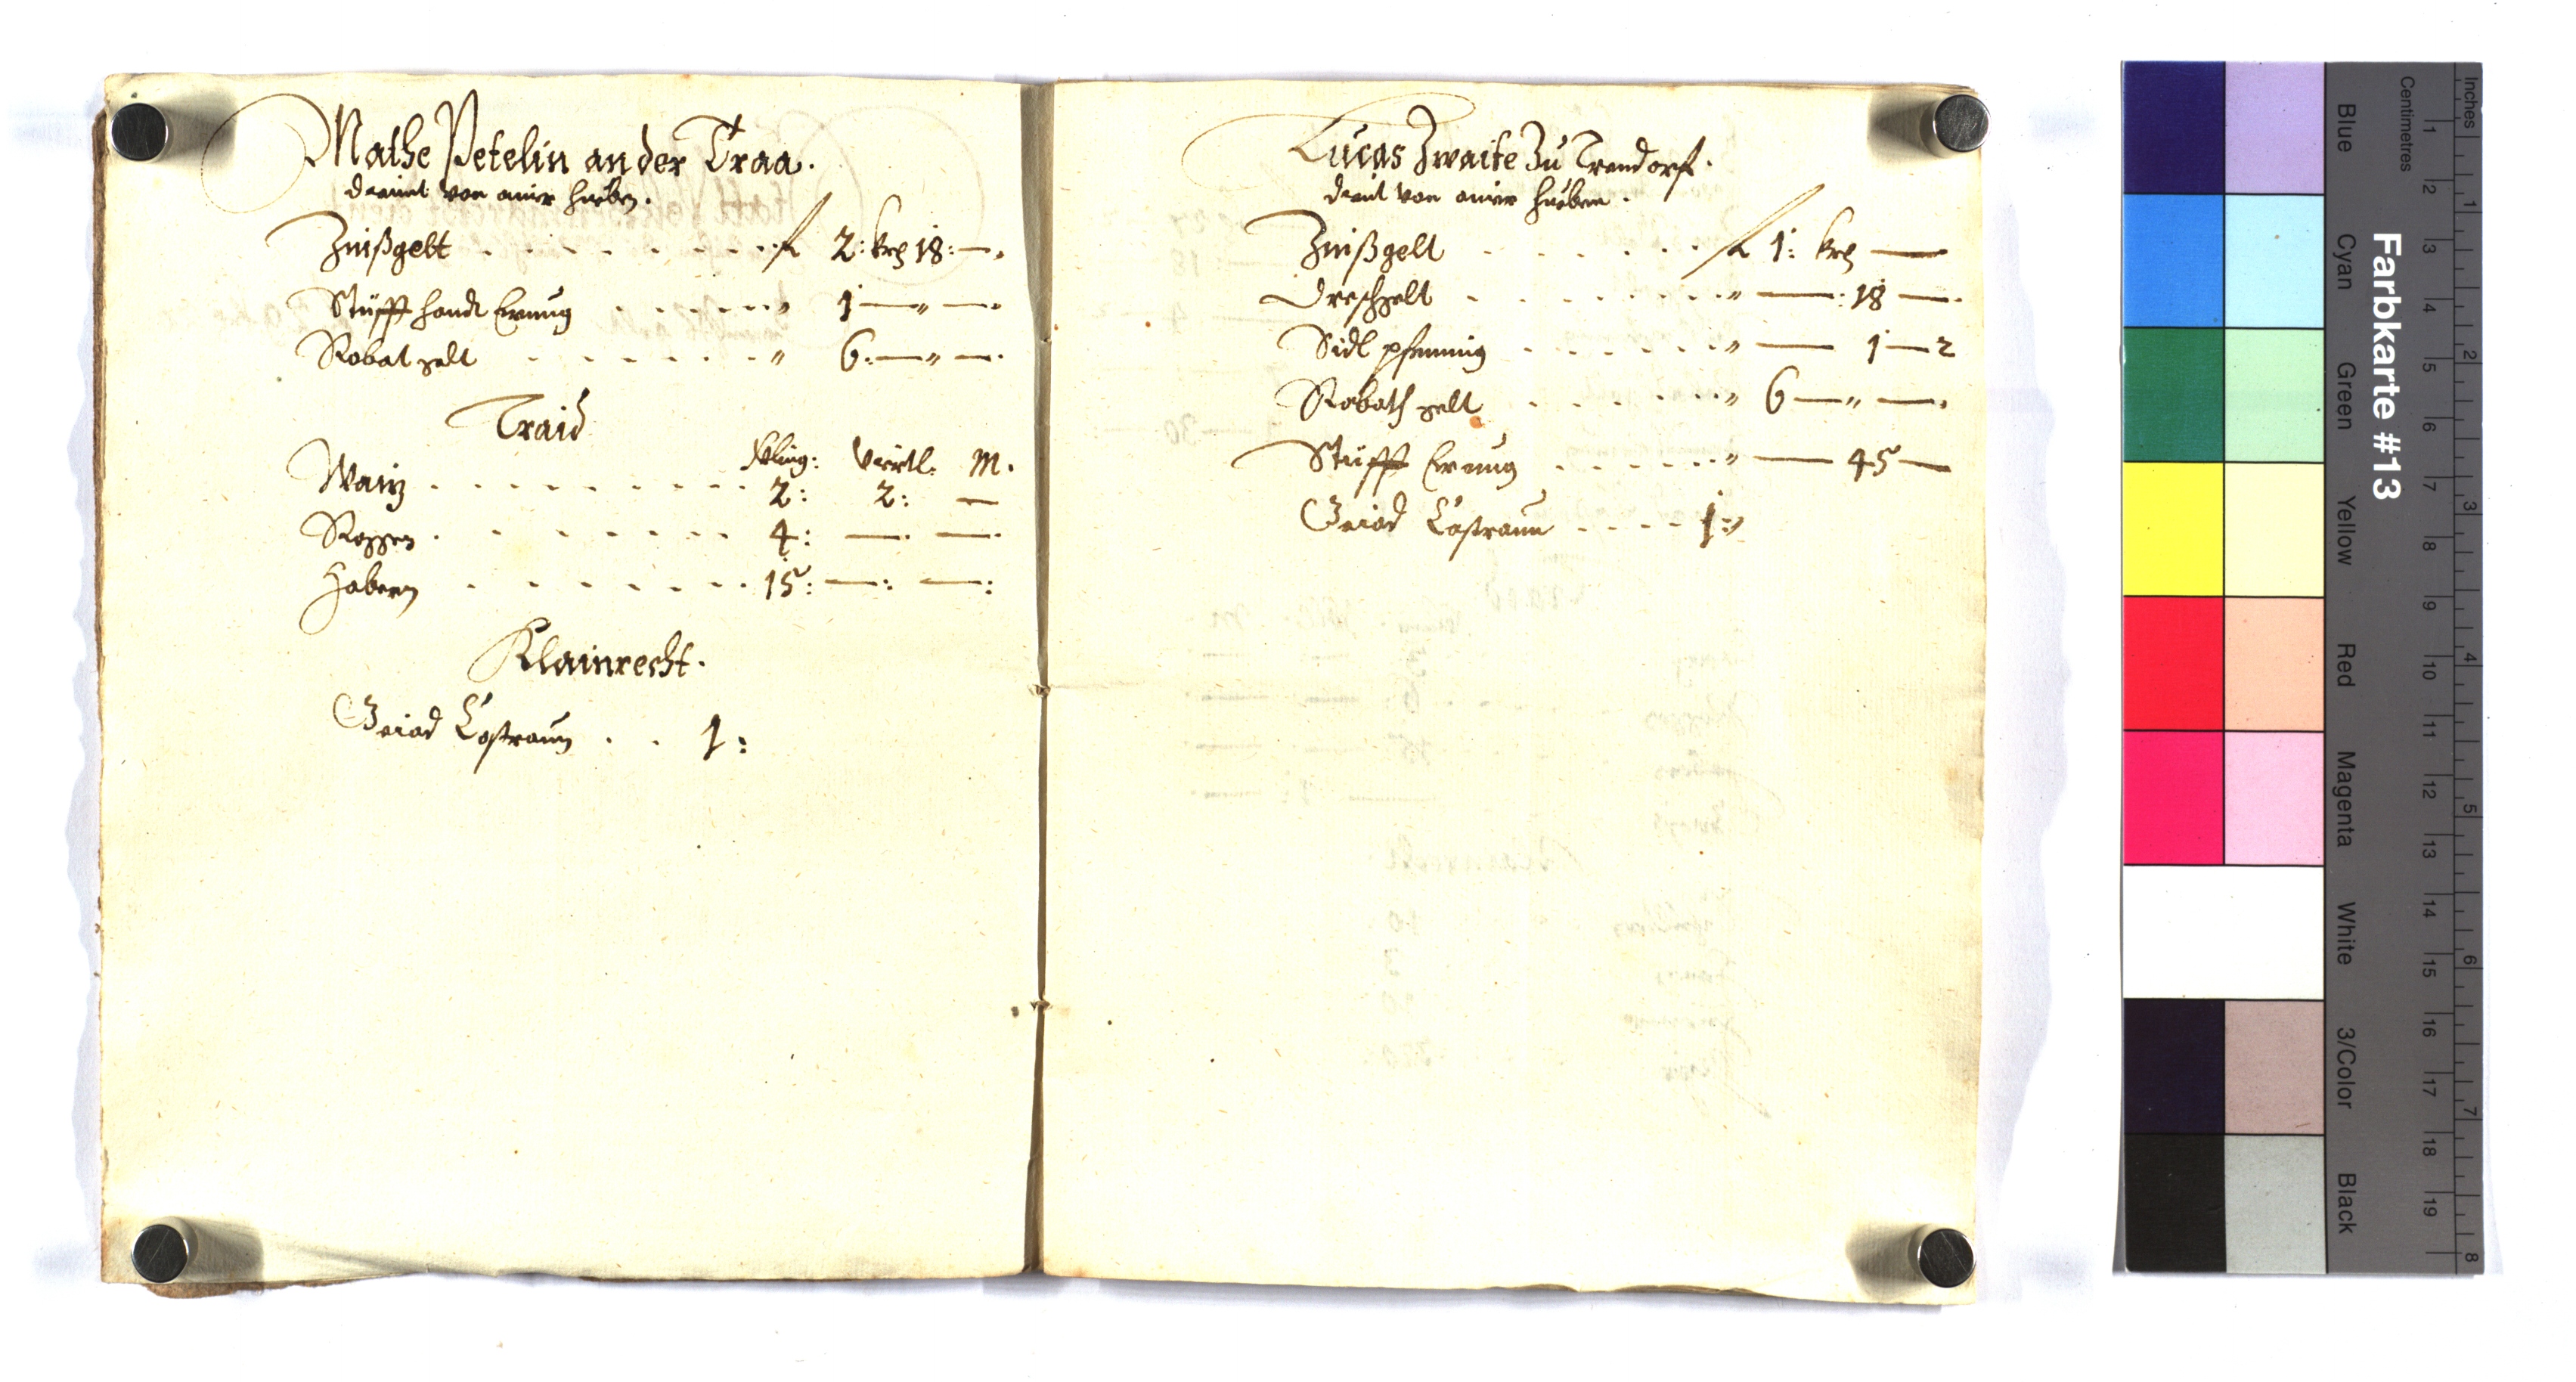 Mathe Petelin an der Traa.
diennt von ainer Hueben.
Zinßgelt . . . . . . . f 2: krz 18: —.
Stüfft handt Erung . . . . . " 1 — " —
Robat gelt . . . . . . " 6: — " —.
Traid
Virtl. M.
Waiz . . . . . . . . . 2: 2: —
Roggen . . . . . . . 4: —. —.
Habern . . . . . . . 15: —: —:
Klainrecht.
Castraun . . 1:
Lucas Zwaite Zu Trendorf.
dient von ainer Hueben.
Zinßgelt . . . . . f 1: krz —
Dreschgelt . . . . . . " —: 18 —.
Sidl pfenning . . . . . . " — 1 — 2
Robath gelt . . . . . " 6 — " —.
Stüfft Erung . . . . . " — 45 —
Castraun . . . . 1:
Farbkarte #13
Blue
Cyan
Green
Yellow
Red
Magenta
White
3/Color
Black
Centimetres
1 2 3 4 5 6 7 8 9 10 11 12 13 14 15 16 17 18 19
Inches
1 2 3 4 5 6 7 8